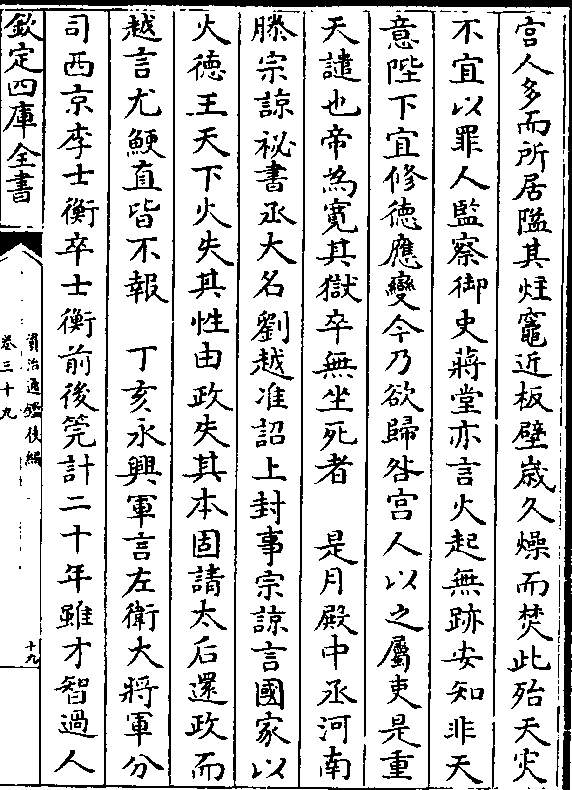 宫人多而所居隘其炷竈近板壁歳久燥而焚此殆天災
不宜以罪人監察御史蔣堂亦言火起無跡安知非天
意陛下宜修德應變今乃欲歸咎宫人以之屬吏是重
天譴也帝為寛其獄卒無坐死者　是月殿中丞河南
滕宗諒祕書丞大名劉越准詔上封事宗諒言國家以
火德王天下火失其性由政失其本固請太后還政而
越言尤鯁直皆不報　丁亥永興軍言左衛大將軍分
司西京李士衡卒士衡前後筦計二十年雖才智過人
欽定四庫全書
資治通鑑後編
卷三十九
十九